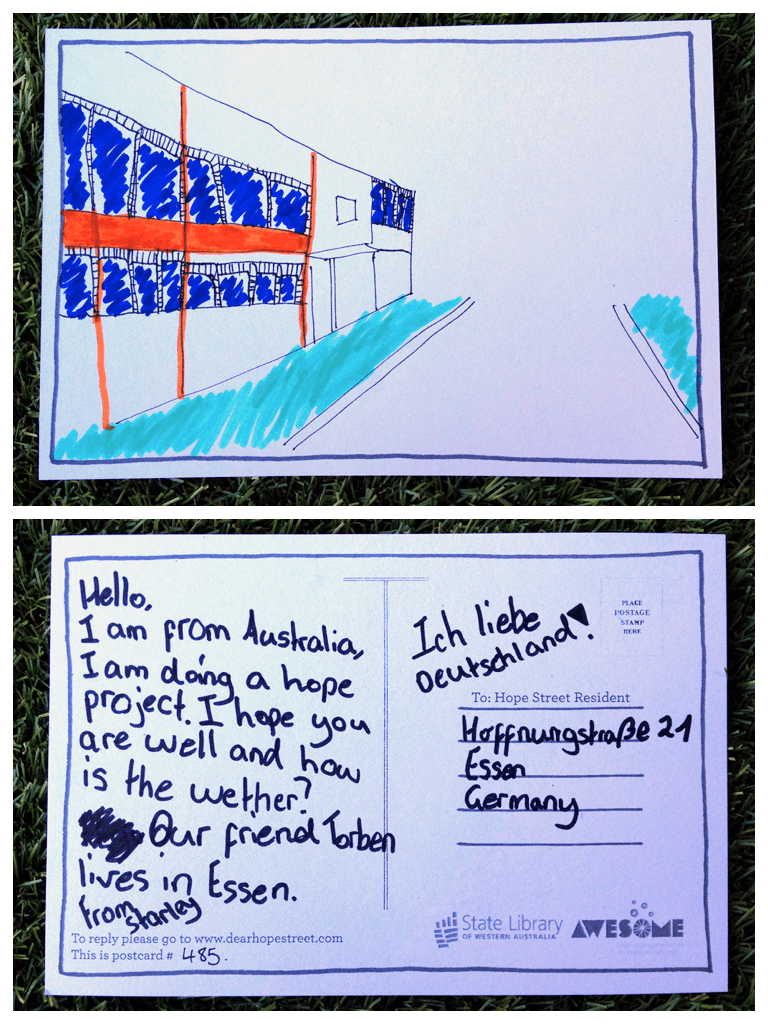 Hello,
I am from Australia,
I am doing a hope
project. I hope you
are well and how
is the wether?
Our friend Torben
lives in Essen.
from Starley
To reply please go to www.dearhopestreet.com
This is postcard # 485.
Ich liebe
Deutschland!
PLACE
POSTAGE
STAMP
HERE
To: Hope Street Resident
Hoffnungstraße 21
Essen
Germany
State Library
OF WESTERN AUSTRALIA
AWESOME